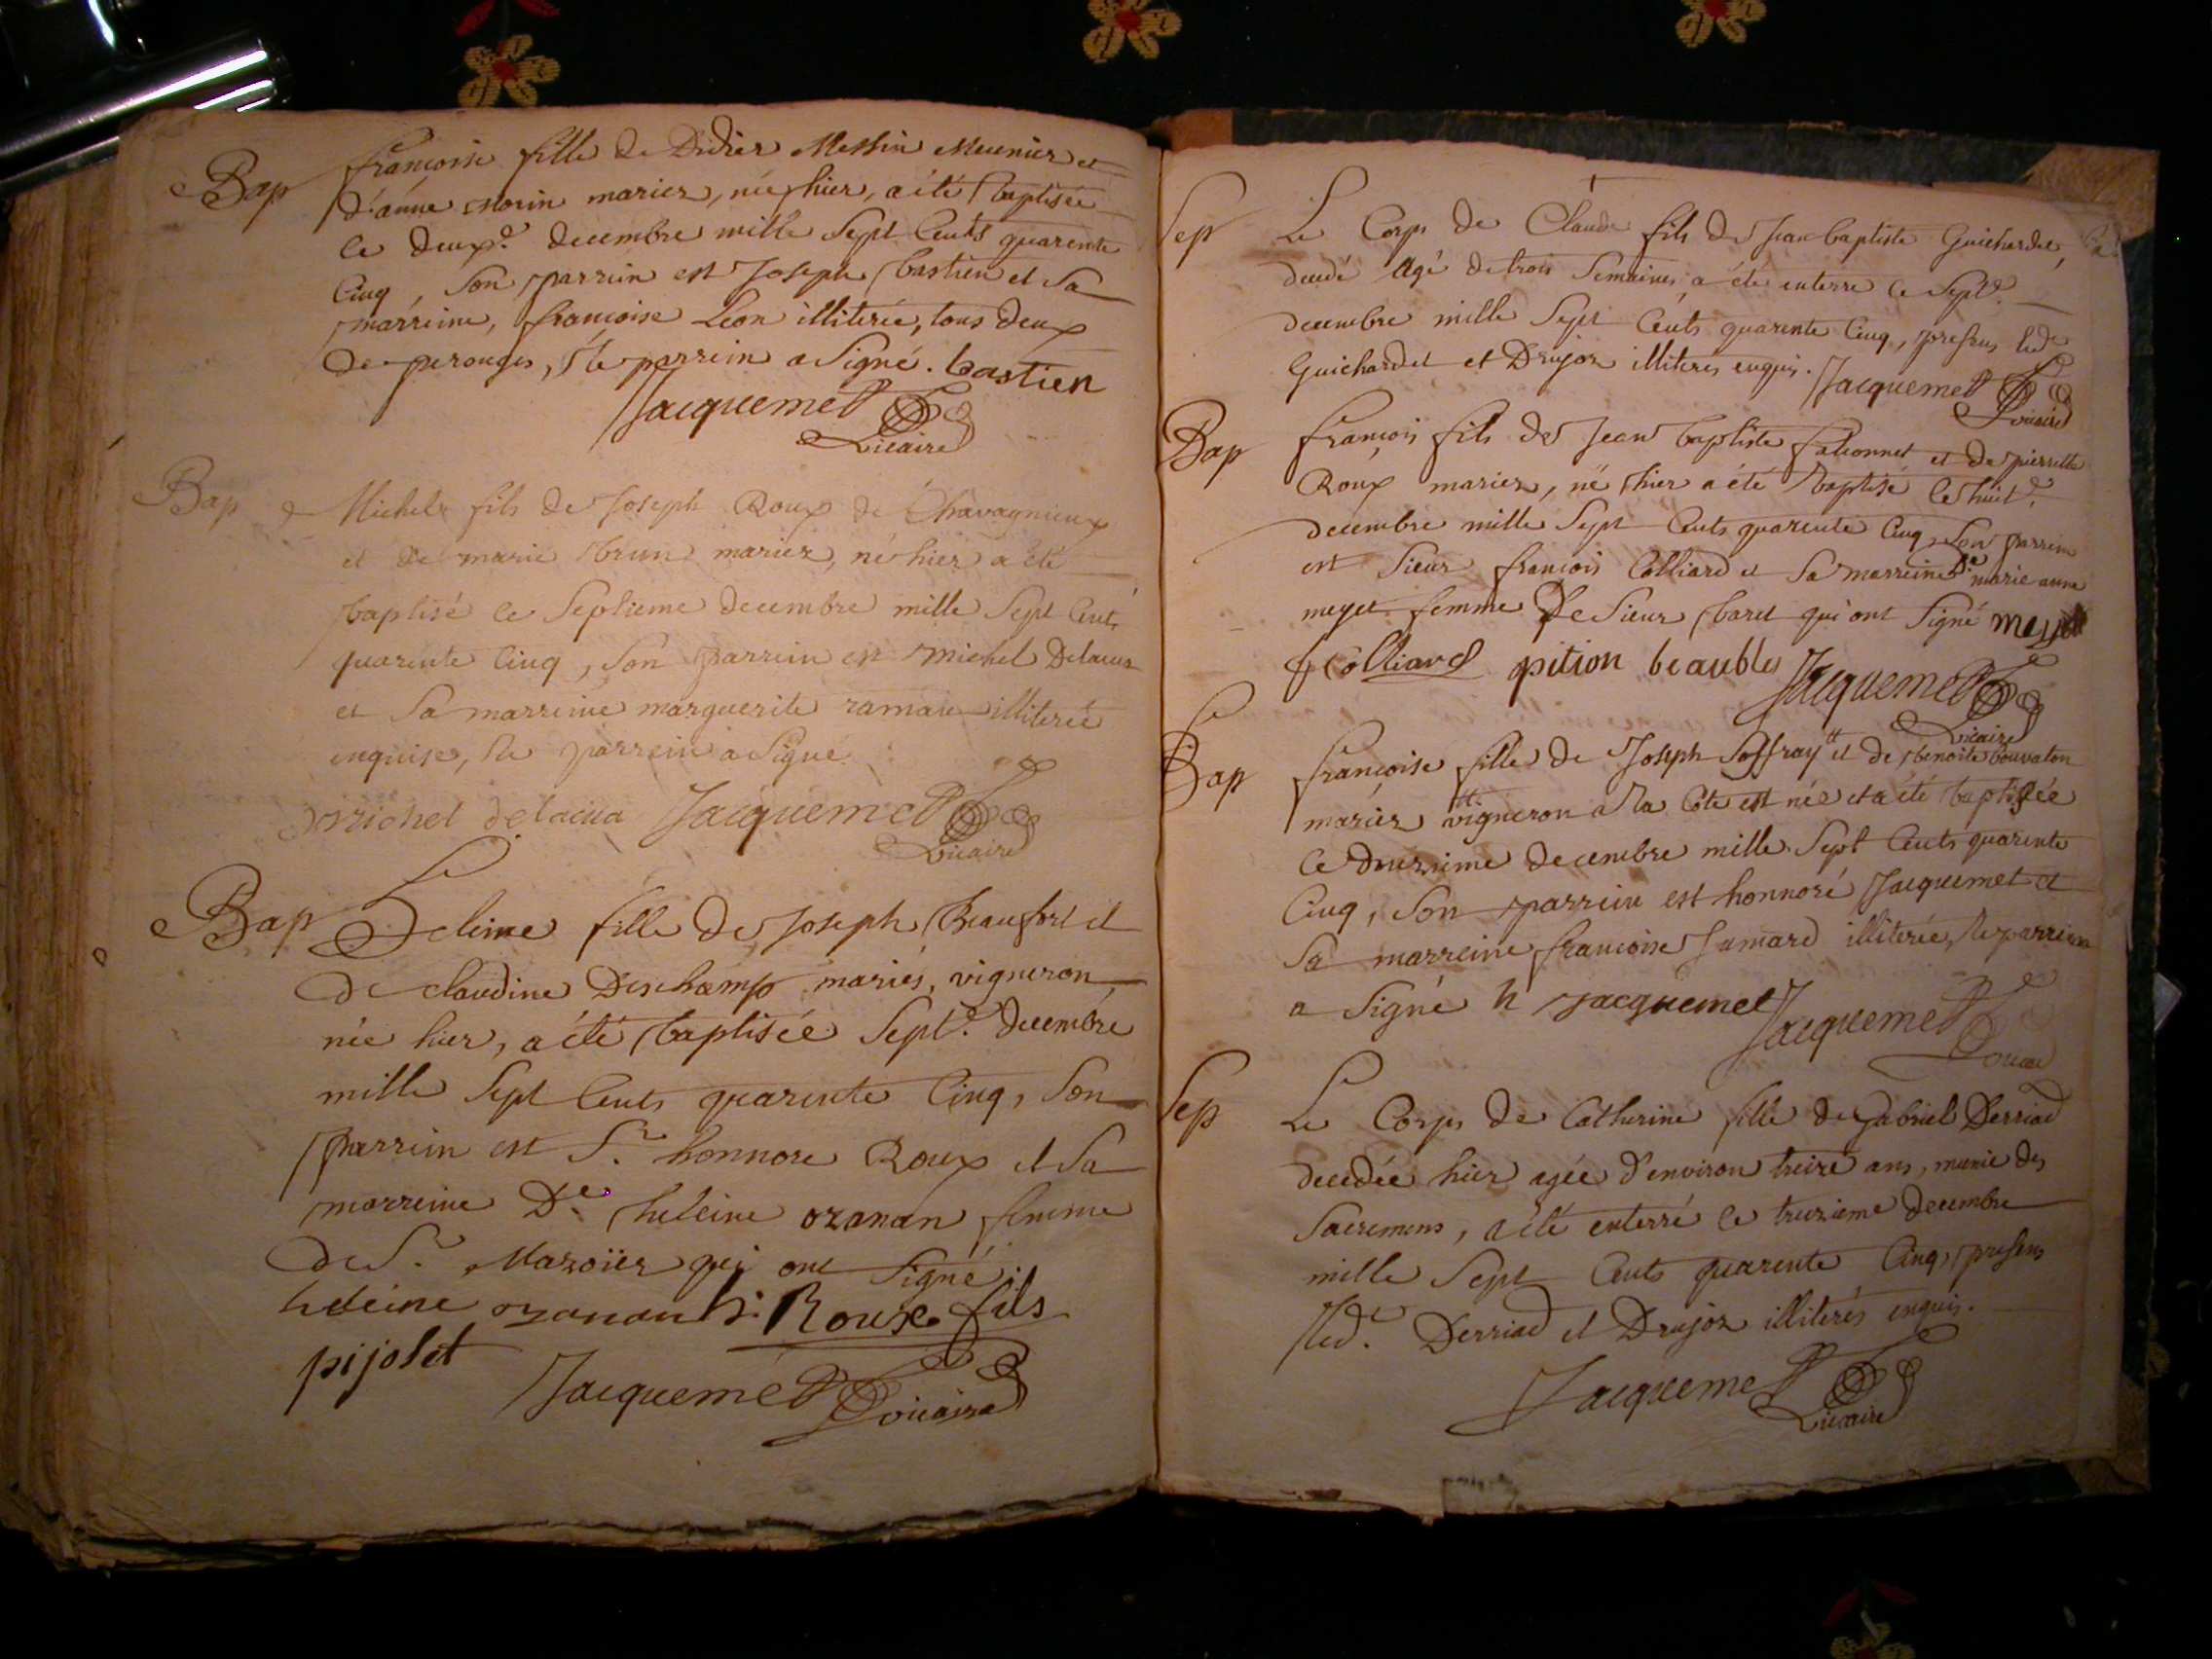 Bap
françoise fille de Didier Messin Meunier et
d'anne Morin mariez, née hier, a été baptisée
le deuxe. decembre mille Sept Cents quarente
Cinq, Son parrein est Joseph bastien et Sa
marreine, françoise Leon illiterée, tous deux
de perouges, le parrein a Signé. bastien
Jacquemet
Vicaire
Bap
Michel fils de Joseph Roux de Chavagnieux
et de marie brun mariez, né hier a été
baptisé le Septieme decembre mille Sept Cent
quarente Cinq, Son parrein est michel Delacua
et Sa marreine marguerite illiterée
enquise, le parrein a Signé
michel delacua Jacquemet
Vicaire
Bap
fille de Joseph Beaufort et
de claudine Deschamp mariés, vigneron,
née hier, a été baptisée Septe. decembre
mille Sept Cents quarente Cinq, Son
parrein est Sr. honnore Roux et Sa
marreine De. heleine ozanan femme
de Sr. Mazoïer qui ont Signé
heleine ozanan h. Roux fils
pijolet
Jacquemet
vicaire
Sep
Le Corps de Claude fils de Jean baptiste Guichardet,
decedé Agé de trois Semaines, a été enterre le Septe.
decembre mille Sept Cents quarente Cinq, presens led.
Guichardet et Drujon illiteres enquis. Jacquemet
vicaire
Bap
françois fils de Jean baptiste falconnet et de pierrette
Roux mariez, né hier a été baptisé le huite.
decembre mille Sept Cents quarente Cinq, Son parrein
est Sieur françois Colliard et Sa marreine De. marie anne
meyet femme de Sieur baret qui ont Signé meyet
f Colliard pition beaublés Jacquemet
Vicaire
Bap
françoise fille de Joseph Soffray tt et de benoite bouvaton
mariez tt. vigneron a la Cote est née et a été baptisée
le douzieme decembre mille Sept Cents quarente
Cinq, Son parrein est honnoré Jacquemet et
Sa marreine françoise Jumard illiterée, le parrein
a Signé h Jacquemet Jacquemet
vicaire
Sep
Le Corps de Catherine fille de Gabriel Derriad
decedée hier agée d'environ treize ans, munie des
Sacremens, a été enterré le treizieme decembre
mille Sept Cents quarente Cinq, presens
led. Derriad et Drujon illiterés enquis.
Jacquemet
Vicaire